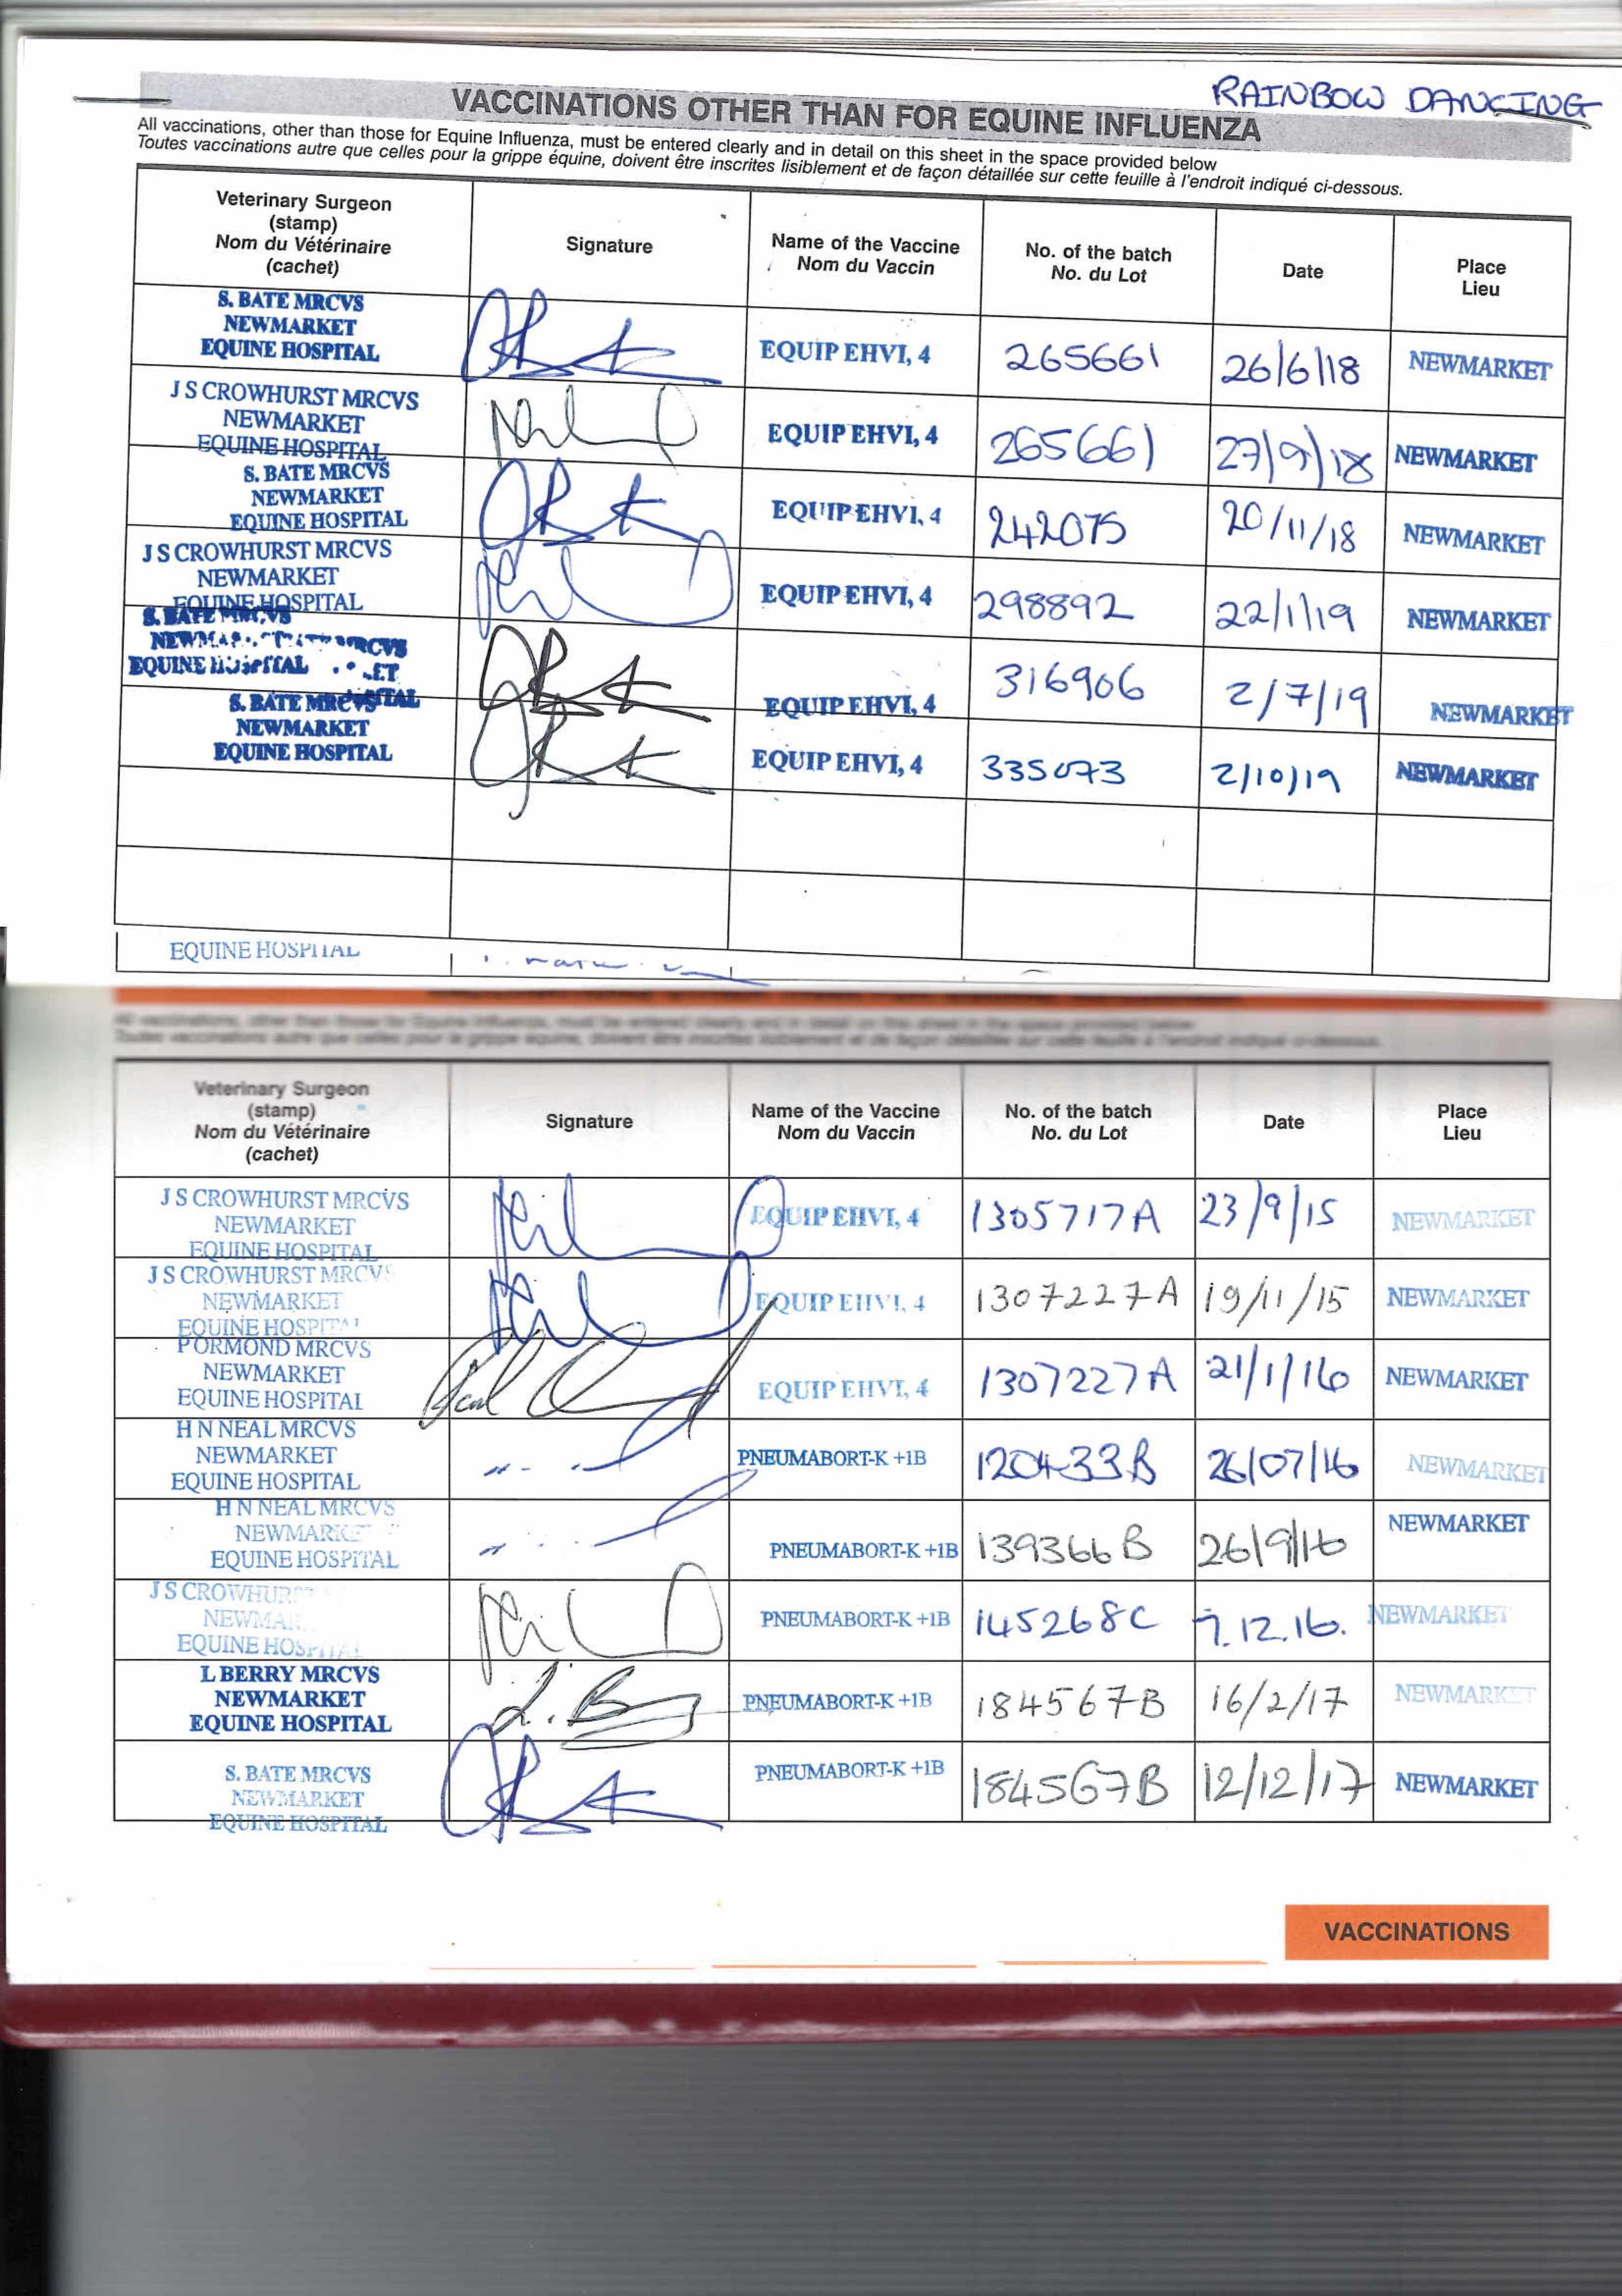 RAINBOW DANCING
VACCINATIONS OTHER THAN FOR EQUINE INFLUENZA
All vaccinations, other than those for Equine Influenza, must be entered clearly and in detail on this sheet in the space provided below
Toutes vaccinations autre que celles pour la grippe équine, doivent être inscrites lisiblement et de façon détaillée sur cette feuille à l'endroit indiqué ci-dessous.
Veterinary Surgeon
(stamp)
Nom du Vétérinaire
(cachet)
Signature
Name of the Vaccine
Nom du Vaccin
No. of the batch
No. du Lot
Date
Place
Lieu
S. BATE MRCVS
NEWMARKET
EQUINE HOSPITAL
EQUIP EHVI, 4
265661
26/6/18
NEWMARKET
J S CROWHURST MRCVS
NEWMARKET
EQUINE HOSPITAL
EQUIP EHVI, 4
265661
27/9/18
NEWMARKET
S. BATE MRCVS
NEWMARKET
EQUINE HOSPITAL
EQUIP EHVI, 4
242075
20/11/18
NEWMARKET
J S CROWHURST MRCVS
NEWMARKET
EQUINE HOSPITAL
EQUIP EHVI, 4
298892
22/1/19
NEWMARKET
S. BATE MRCVS
EQUINE HOSPITAL
EQUIP EHVI, 4
316906
2/7/19
NEWMARKET
S. BATE MRCVS
NEWMARKET
EQUINE HOSPITAL
EQUIP EHVI, 4
335073
2/10/19
NEWMARKET
EQUINE HOSPITAL
All vaccinations, other than those for Equine Influenza, must be entered clearly and in detail on this sheet in the space provided below
Toutes vaccinations autre que celles pour la grippe équine, doivent être inscrites lisiblement et de façon détaillée sur cette feuille à l'endroit indiqué ci-dessous.
Veterinary Surgeon
(stamp)
Nom du Vétérinaire
(cachet)
Signature
Name of the Vaccine
Nom du Vaccin
No. of the batch
No. du Lot
Date
Place
Lieu
J S CROWHURST MRCVS
NEWMARKET
EQUINE HOSPITAL
EQUIP EHVI, 4
1305717A
23/9/15
NEWMARKET
J S CROWHURST MRCVS
NEWMARKET
EQUINE HOSPITAL
EQUIP EHVI, 4
1307227A
19/11/15
NEWMARKET
P ORMOND MRCVS
NEWMARKET
EQUINE HOSPITAL
EQUIP EHVI, 4
1307227A
21/1/16
NEWMARKET
H N NEAL MRCVS
NEWMARKET
EQUINE HOSPITAL
PNEUMABORT-K +1B
120433B
26/07/16
NEWMARKET
H N NEAL MRCVS
NEWMARKET
EQUINE HOSPITAL
PNEUMABORT-K +1B
139366B
26/9/16
NEWMARKET
J S CROWHURST
NEWMA
EQUINE HOSPITAL
PNEUMABORT-K +1B
145268C
7.12.16.
NEWMARKET
L BERRY MRCVS
NEWMARKET
EQUINE HOSPITAL
L. B
PNEUMABORT-K +1B
184567B
16/2/17
NEWMARKET
S. BATE MRCVS
NEWMARKET
EQUINE HOSPITAL
PNEUMABORT-K +1B
184567B
12/12/17
NEWMARKET
VACCINATIONS